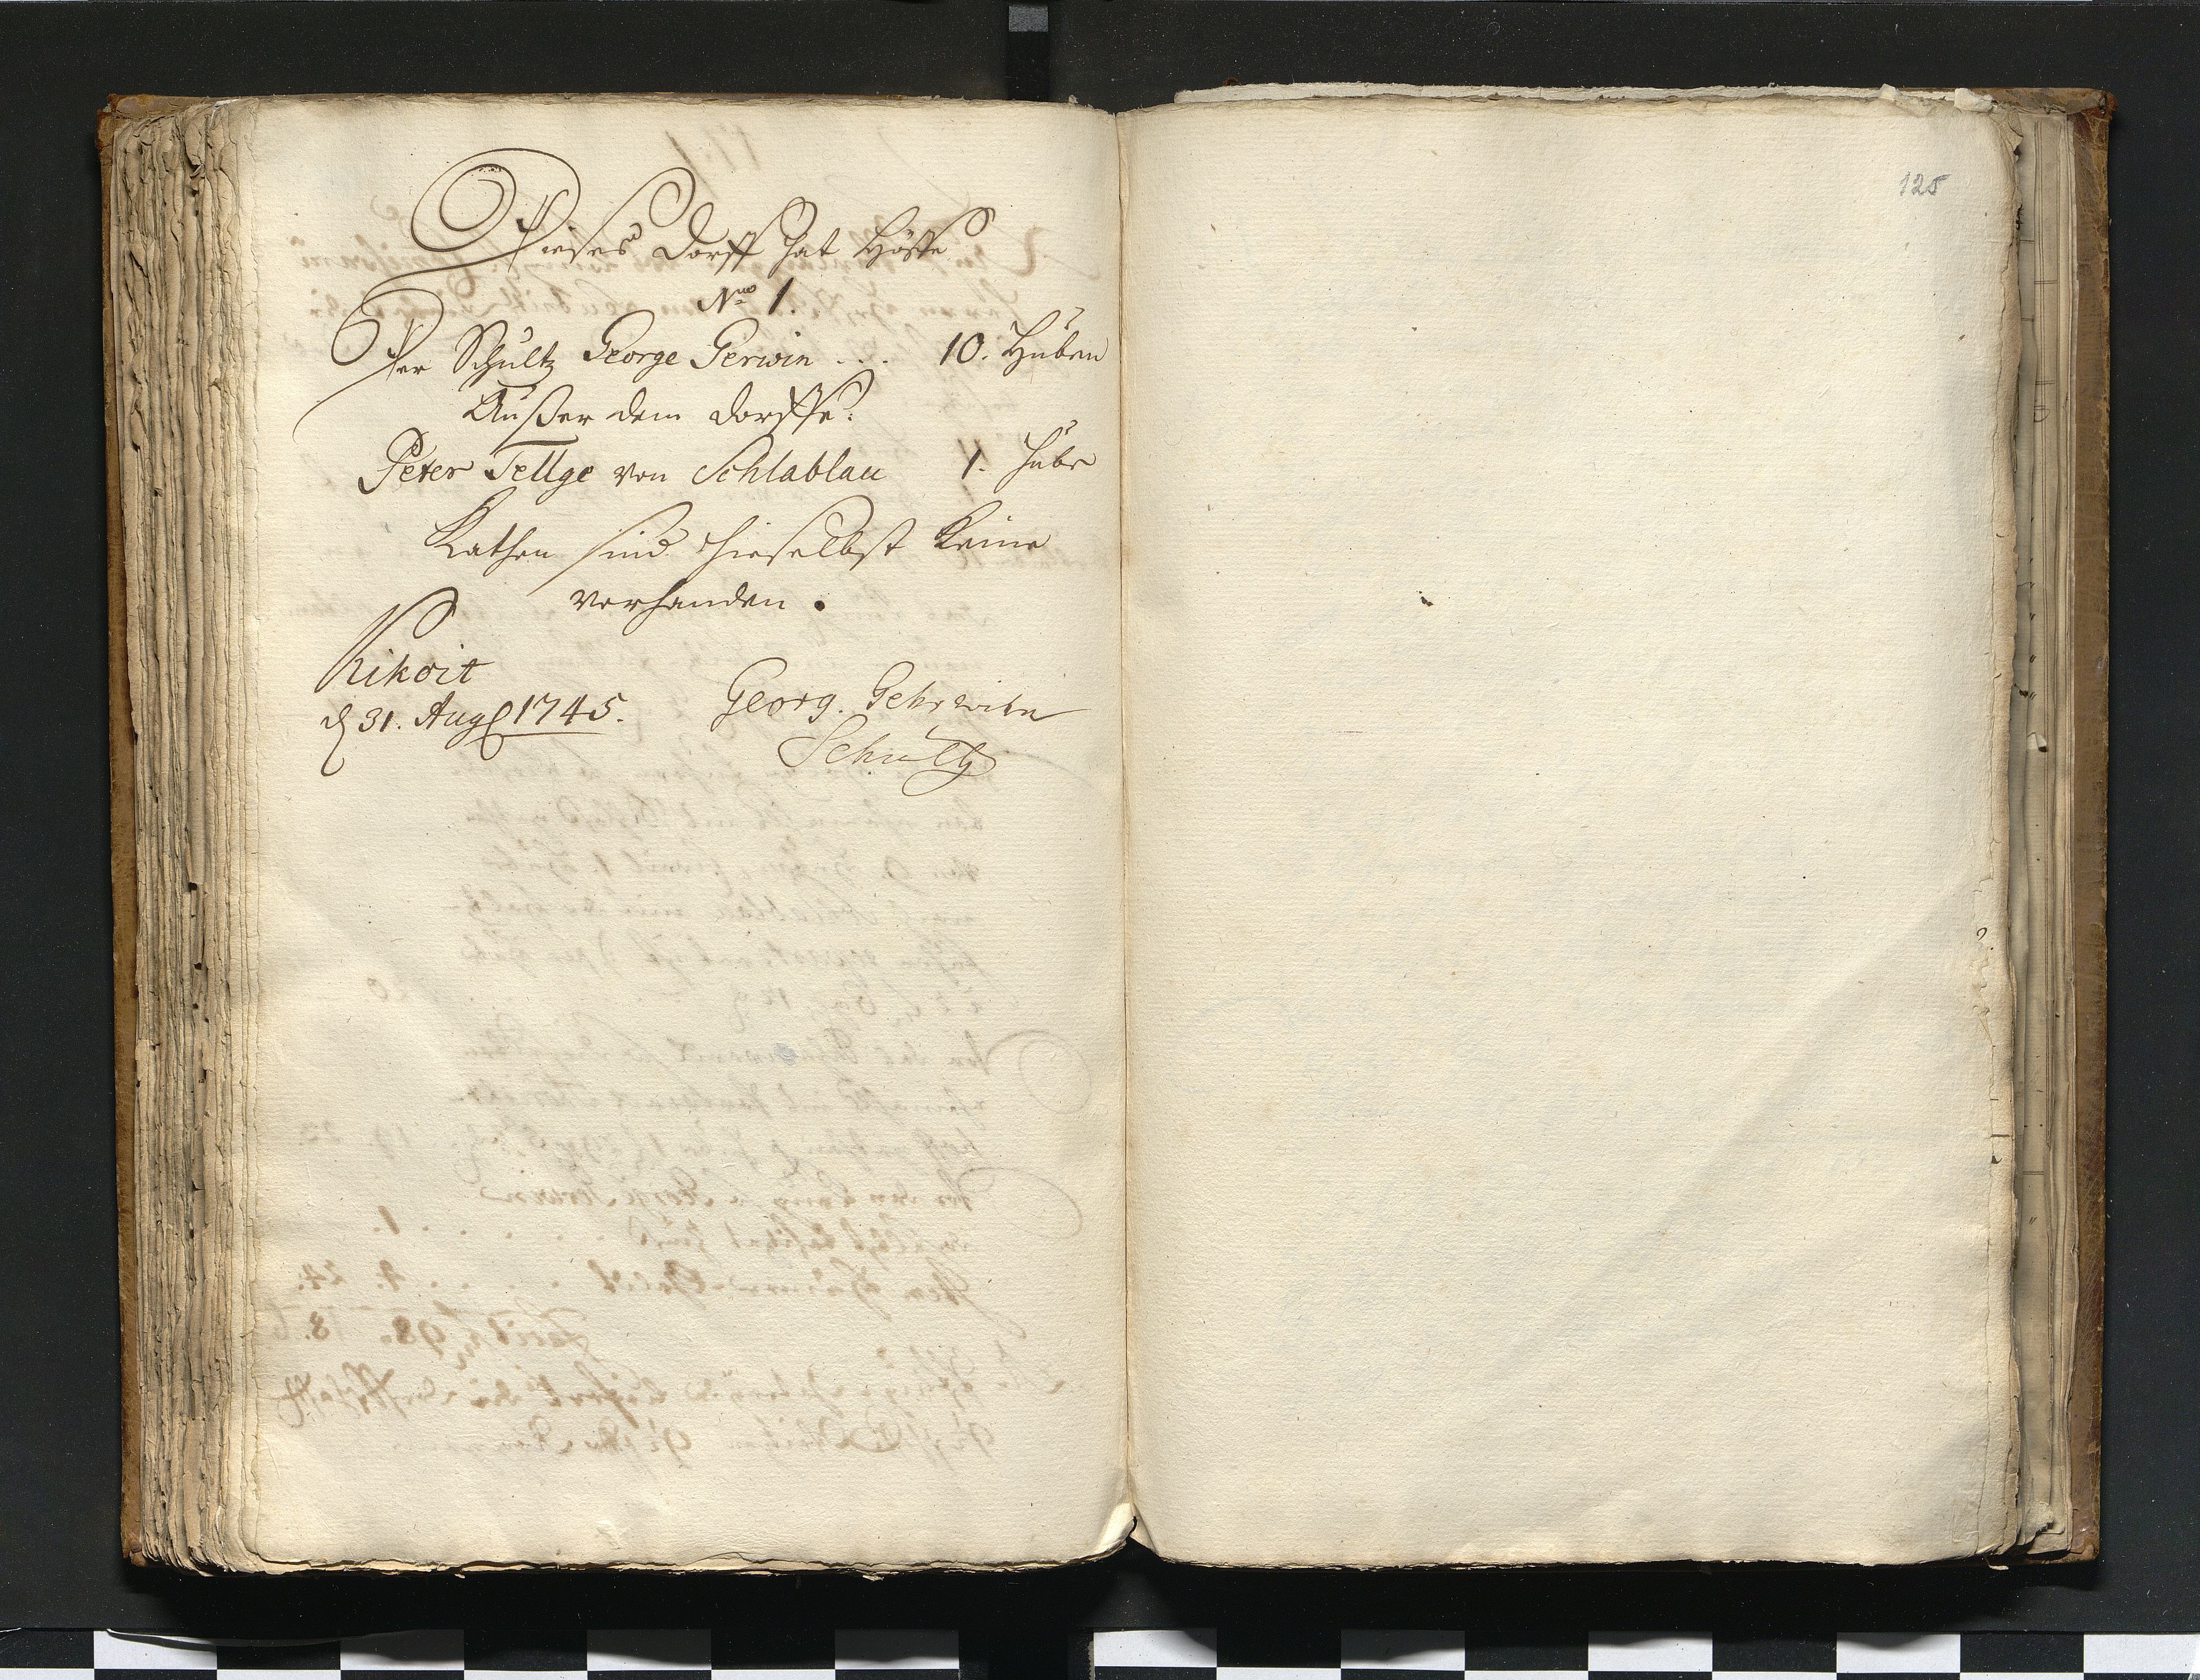 Dieses Dorff hat Höffe
Nro 1.
Der Schultz George Gerwin . . . 10. Huben
Außer dem Dorffe.
Peter Tellge von Schlablau 1. Hube
Kathen sind hieselbst keine
verhanden.
Kikoit
d 31. Aug 1745. Georg. Gehrwibn
Schultz
125